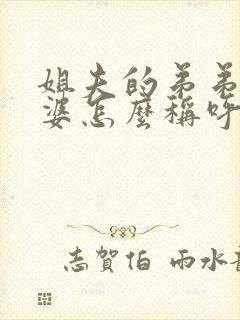 姐夫的弟弟
婆怎麼稱呼
志賀伯 雨水